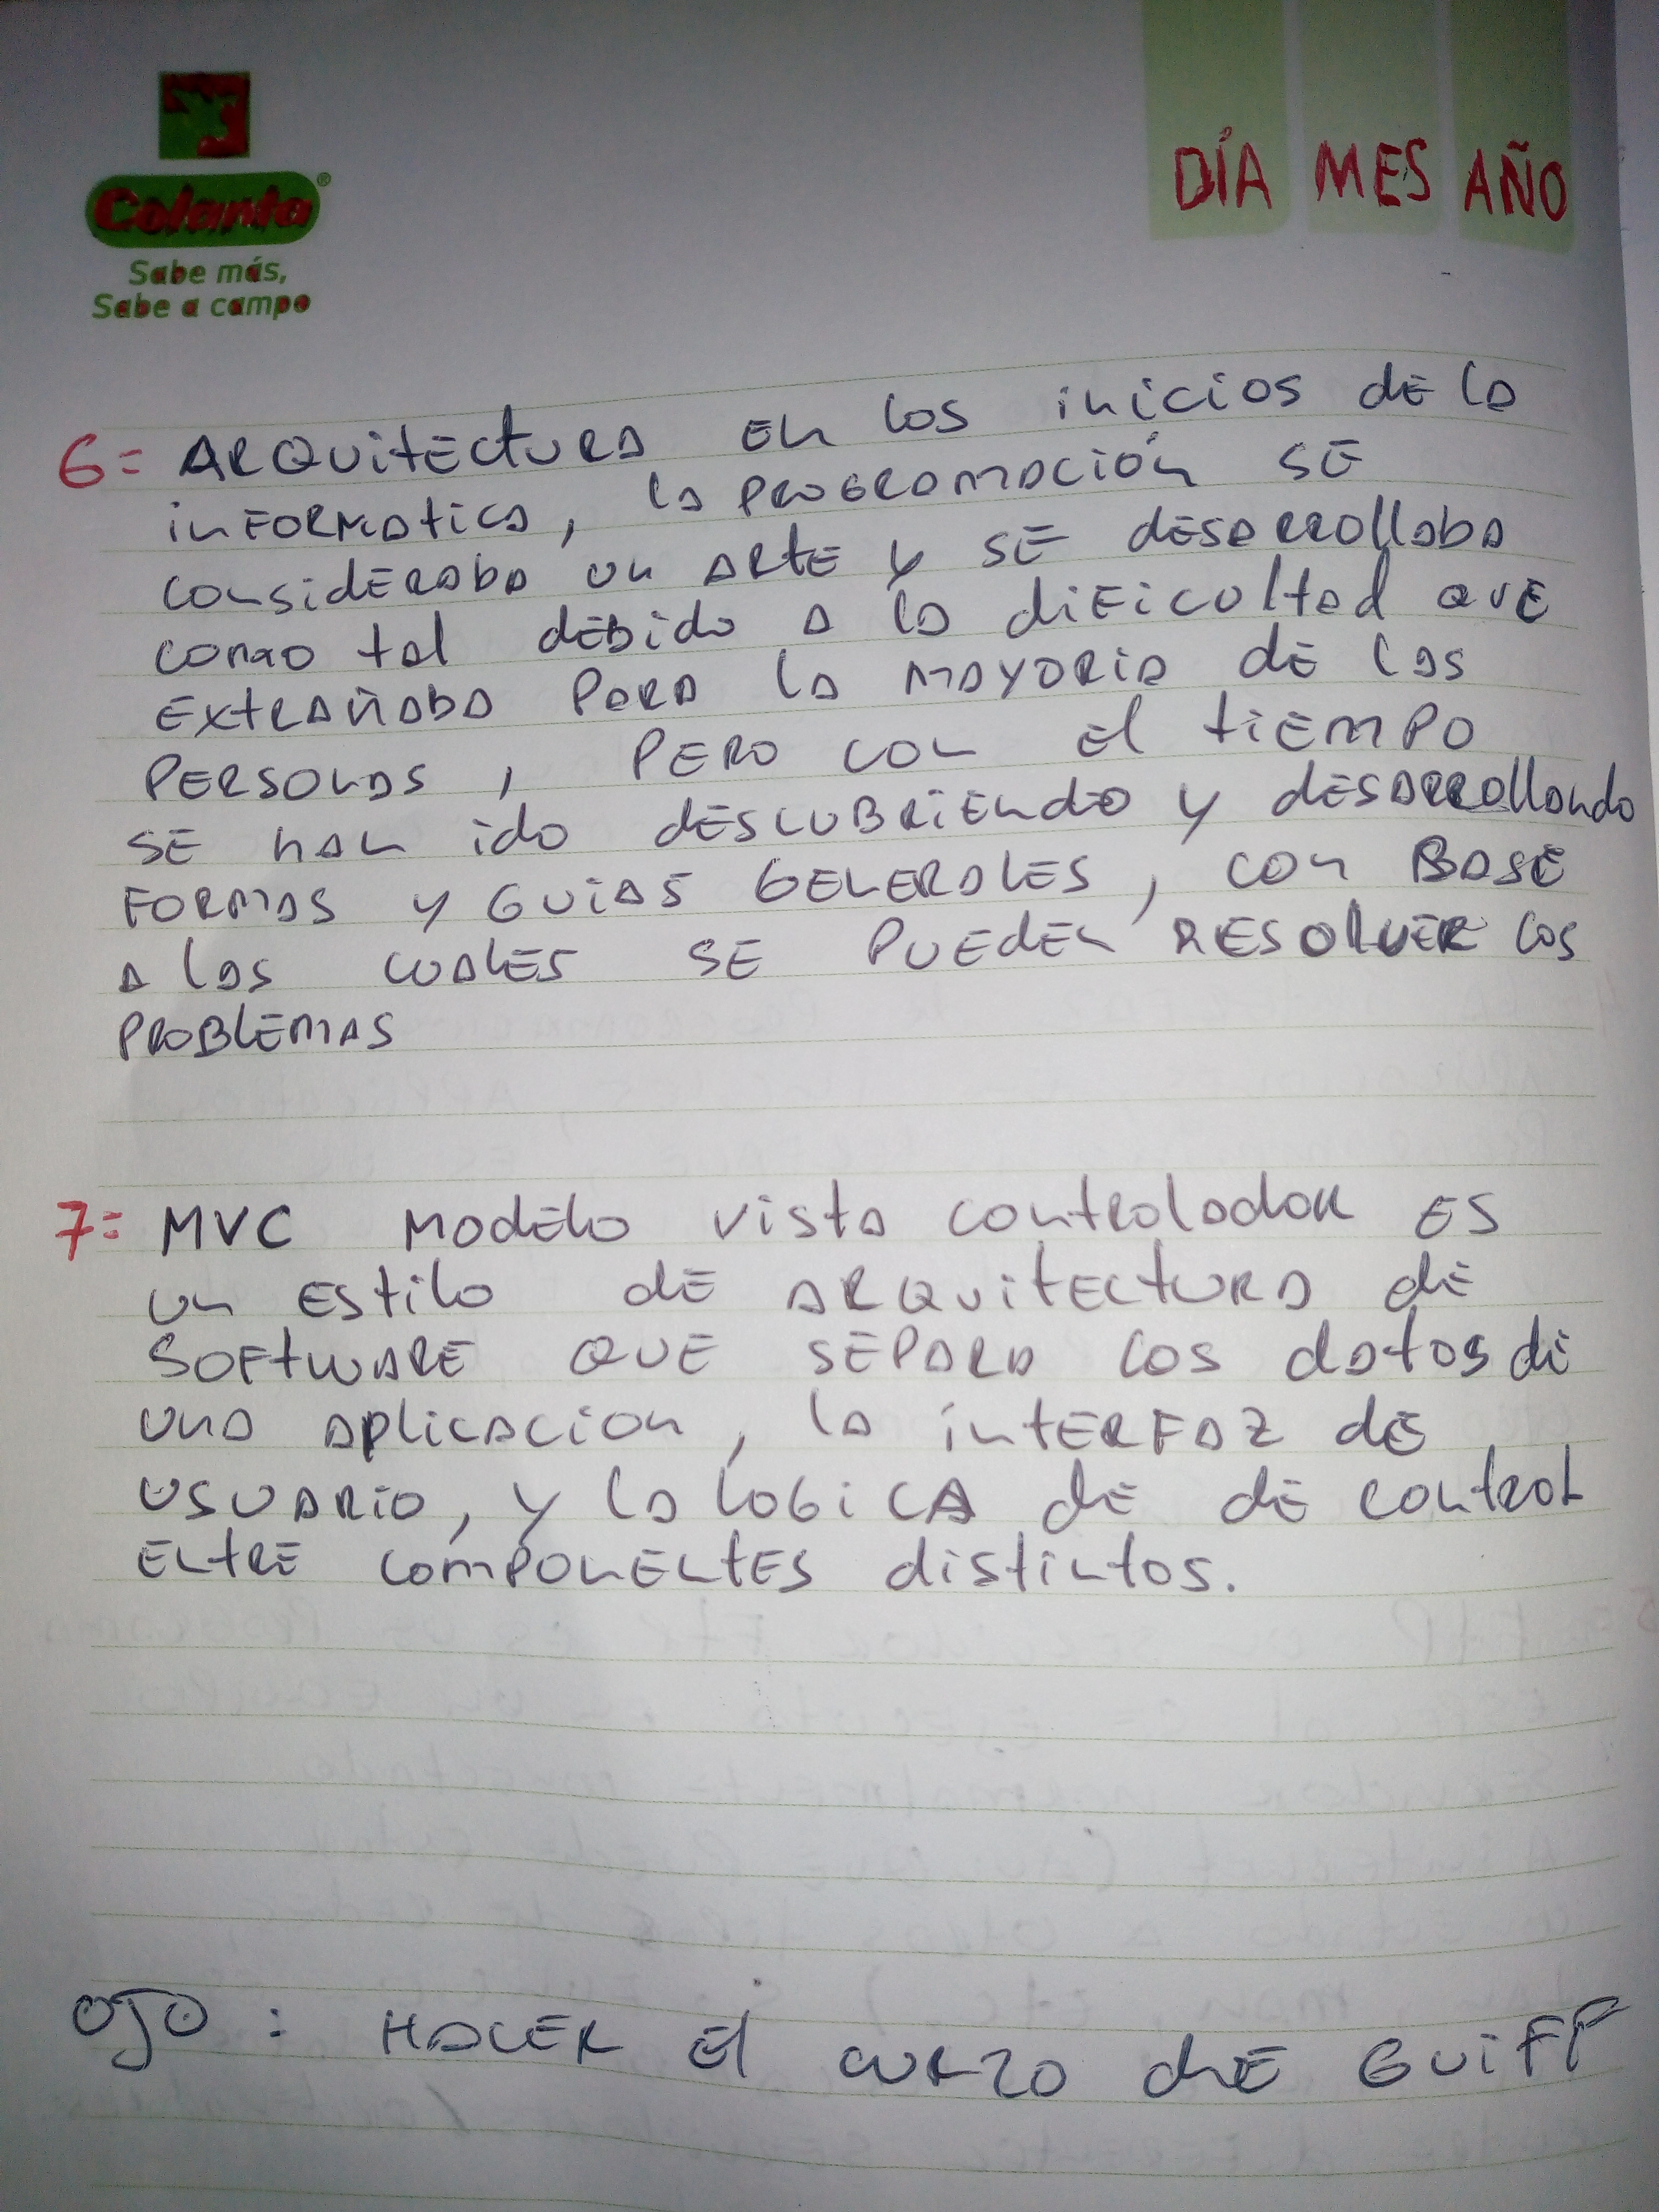 Colanta®
Sabe más,
Sabe a campo
DÍA MES AÑO
6= ARQUITECTURA EN LOS INICIOS DE LA
INFORMATICA, LA PROGRAMACIÓN SE
CONSIDERABA UN ARTE Y SE DESARROLLABA
COMO TAL DEBIDO A LA DIFICULTAD QUE
EXTRAÑABA PARA LA MAYORIA DE LAS
PERSONAS, PERO CON EL TIEMPO
SE HAN IDO DESCUBRIENDO Y DESARROLLANDO
FORMAS Y GUIAS GENERALES, CON BASE
A LAS CUALES SE PUEDEN RESOLVER LOS
PROBLEMAS
7= MVC MODELO VISTA CONTROLADOR ES
UN ESTILO DE ARQUITECTURA DE
SOFTWARE QUE SEPARA LOS DATOS DE
UNA APLICACION, LA INTERFAZ DE
USUARIO, Y LA LOGICA DE DE CONTROL
ENTRE COMPONENTES DISTINTOS.
OJO: HACER EL CURZO DE